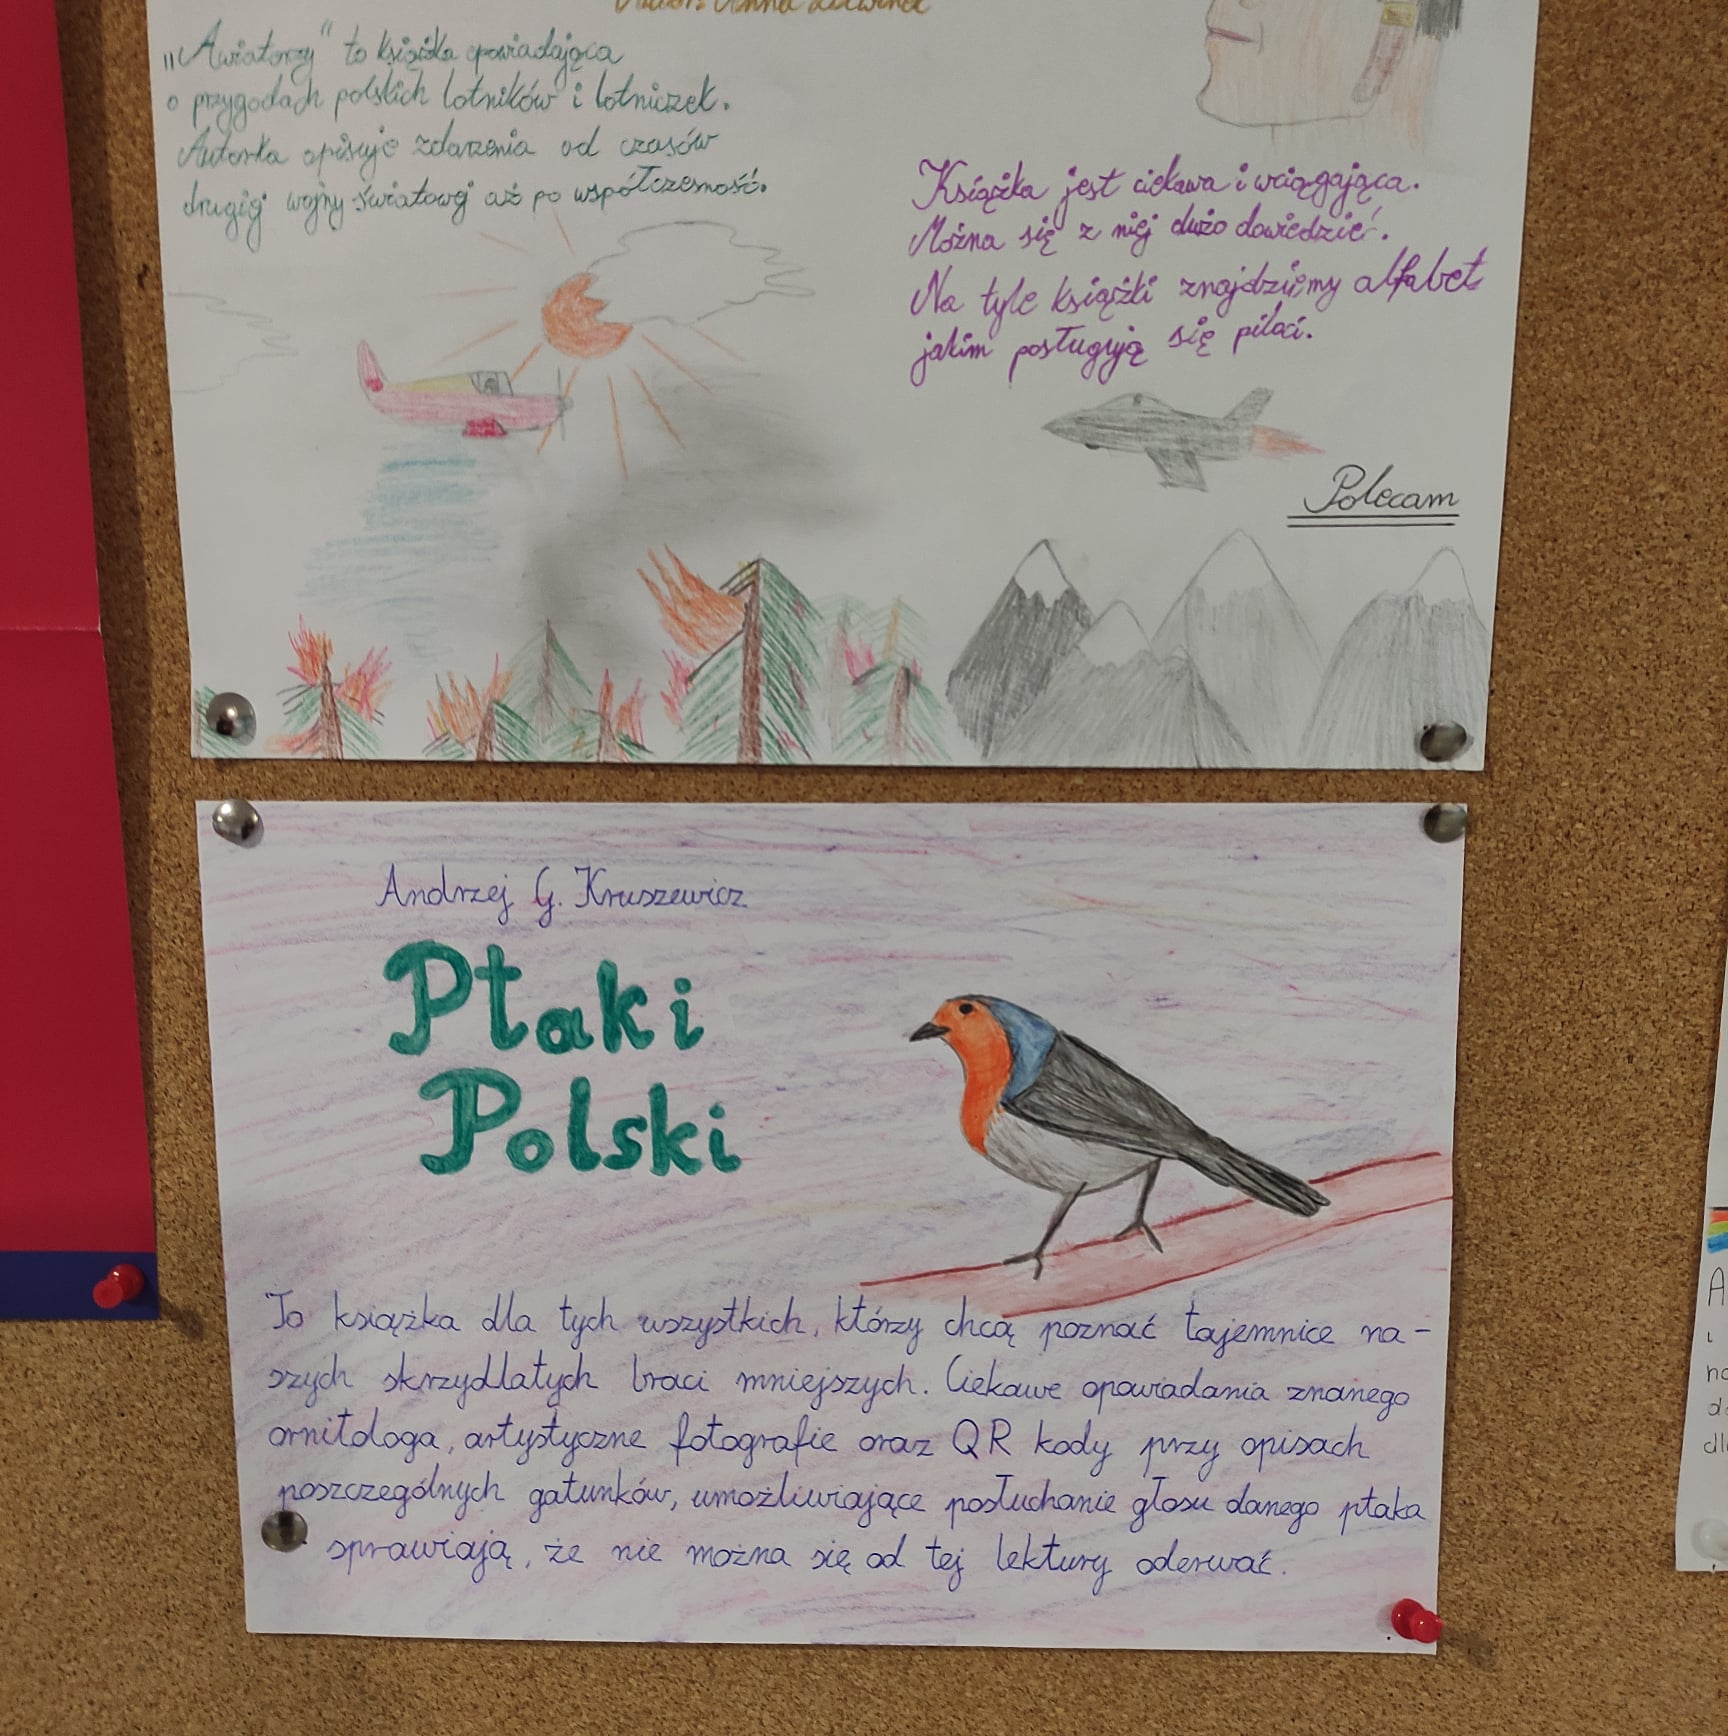 Autor: Anna Litwinek
„Awiatorzy" to książka opowiadająca
o przygodach polskich lotników i lotniczek.
Autorka opisuje zdarzenia od czasów
drugiej wojny światowej aż po współczesność.
Książka jest ciekawa i wciągająca.
Można się z niej dużo dowiedzieć.
Na tyle książki znajdziemy alfabet
jakim posługują się piloci.
Polecam
Andrzej G. Kruszewicz
Ptaki
Polski
To książka dla tych wszystkich, którzy chcą poznać tajemnice na-
szych skrzydlatych braci mniejszych. Ciekawe opowiadania znanego
ornitologa, artystyczne fotografie oraz QR kody przy opisach
poszczególnych gatunków, umożliwiające posłuchanie głosu danego ptaka
sprawiają, że nie można się od tej lektury oderwać.